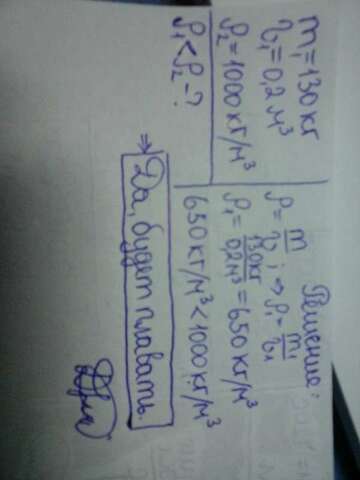 m₁=130 кг
υ₁=0,2 м³
ρ₂=1000 кг/м³
ρ₁<ρ₂-?
Решение:
ρ=m/υ; ⇒ ρ₁=m₁/υ₁
ρ₁=130кг/0,2м³=650 кг/м³
650 кг/м³<1000 кг/м³
⇒ Да, будет плавать.